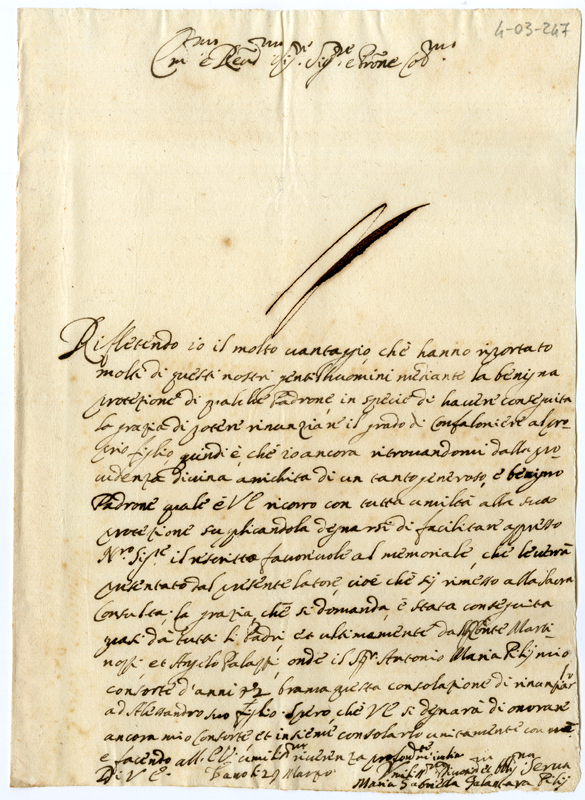 4-03-247
Em.mo e Rev.mo Sig.re Sig.re e Prone Col.mo
Rifletendo io il molto vantaggio, che hanno riportato
molti di questi nostri gentilhuomini mediante la benigna
protezione di qualche Padrone in specie di havere conseguita
la grazia di potere rinunziare il grado di Confaloniere al pro-
prio figlio, quindi è, che io ancora ritrovandomi dalla pro
videnza divina arichita di un tanto generoso, e benigno
Padrone quale è V E ricorro con tutta umiltà alla sua
protezione suplicandola degnarsi di facilitare appresso
N.ro Sig.re il rescritto favorevole al memoriale, che le verrà
presentato dal presente latore, cioè che sij rimesso alla Sacra
Consulta; la grazia, che si domanda, è stata conseguita
quasi da tutti li Padri, et ultimamente dal Conte Marti-
nozzi et Angelo Palazzi, onde il Sig.r Antonio Maria Pilij mio
consorte d'anni 72 brama questa consolazione di rinunziar
ad Alessandro suo figlio. Spero, che V E si degnarà di onorare
ancora mio Consorte et insieme consolarlo unitamente con me
e facendo all' E V umilis.ma riverenza profondam.te m'inchino
Di V E. Fano li 29 Marzo
Umilis.ma Divotis.ma et Obl.ma Serva
Maria Gabriella Galantara Pilij